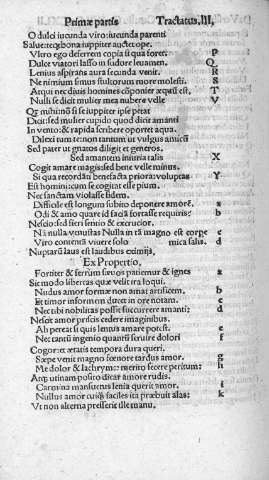 Primæ partis Tractatus, III,
O dulci iucunda viro: iucunda parenti
Salue: teq; bona iuppiter auctet ope.
Vlro ego deserrem copia si qua foret. P
Dulce viatori lasso in sudore leuamen. Q
Lenius aspirans aura secunda venit. R
Ne nimium simus stultorum more molesti. S
Atqui nec diuis homines cōponier æquū est, T
Nulli se dicit mulier mea nubere velle V
Q; mihi: nō si se iuppiter ipse petat
Dicit: sed mulier cupido quod dicit amanti
In vento: & rapida scribere oportet aqua.
Dilexi tum te: non tantum ut vulgus amicā
Sed pater ut gnatos diligit et generos.
Sed amantem iniuria talis X
Cogit amare magis: sed bene velle minus.
Si qua recordāti benefacta priora voluptas Y
Est homini: cum se cogitat esse pium.
Nec sanctam violasse fidem.
Difficile est longum subito deponere amorē. a
Odi & amo quare id faciā fortasse requiris: b
Nescio: sed fieri sentio & excrucior.
Nā nulla venustas Nulla in tā magno est corpe c
Viro contentā viuere solo mica salis. d
Nuptarū laus est laudibus eximijs,
Ex Propertio,
Fortiter & ferrum sæuos patiemur & ignes a
Sit modo libertas quæ velit ira loqui.
Nudus amor formæ non amat artificem. b
Et timor informem ducet in ore notam. c
Nec tibi nobilitas possit succurrere amanti: d
Nescit amor priscis cedere imaginibus.
Ah pereat si quis lentus amare potest. e
Nec tantū ingenio quantū seruire dolori f
Cogor: et ætatis tempora dura queri.
Sæpe venit magno fœnore tardus amor. g
Me dolor & lachrymæ: merito fecere peritum: h
Atq; utinam posito dicar amore rudis.
Carmina mansuetus lenia quærit amor. i
Nullus amor cuiq; faciles ita præbuit alas: k
Vt non alterna presserit ille manu,